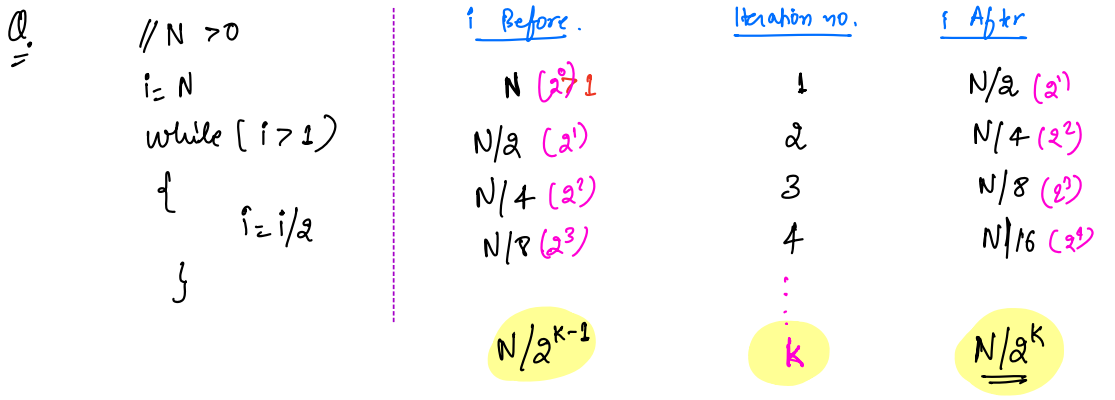 Q.
// N > 0
i = N
while ( i > 1 )
{
i = i/2
}
i Before. Iteration no. i After
N (2⁰) > 1 1 N/2 (2¹)
N/2 (2¹) 2 N/4 (2²)
N/4 (2²) 3 N/8 (2³)
N/8 (2³) 4 N/16 (2⁴)
N/2^(K-1) K N/2^K